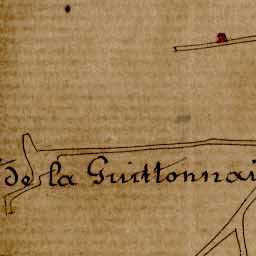 de la Guittonnai